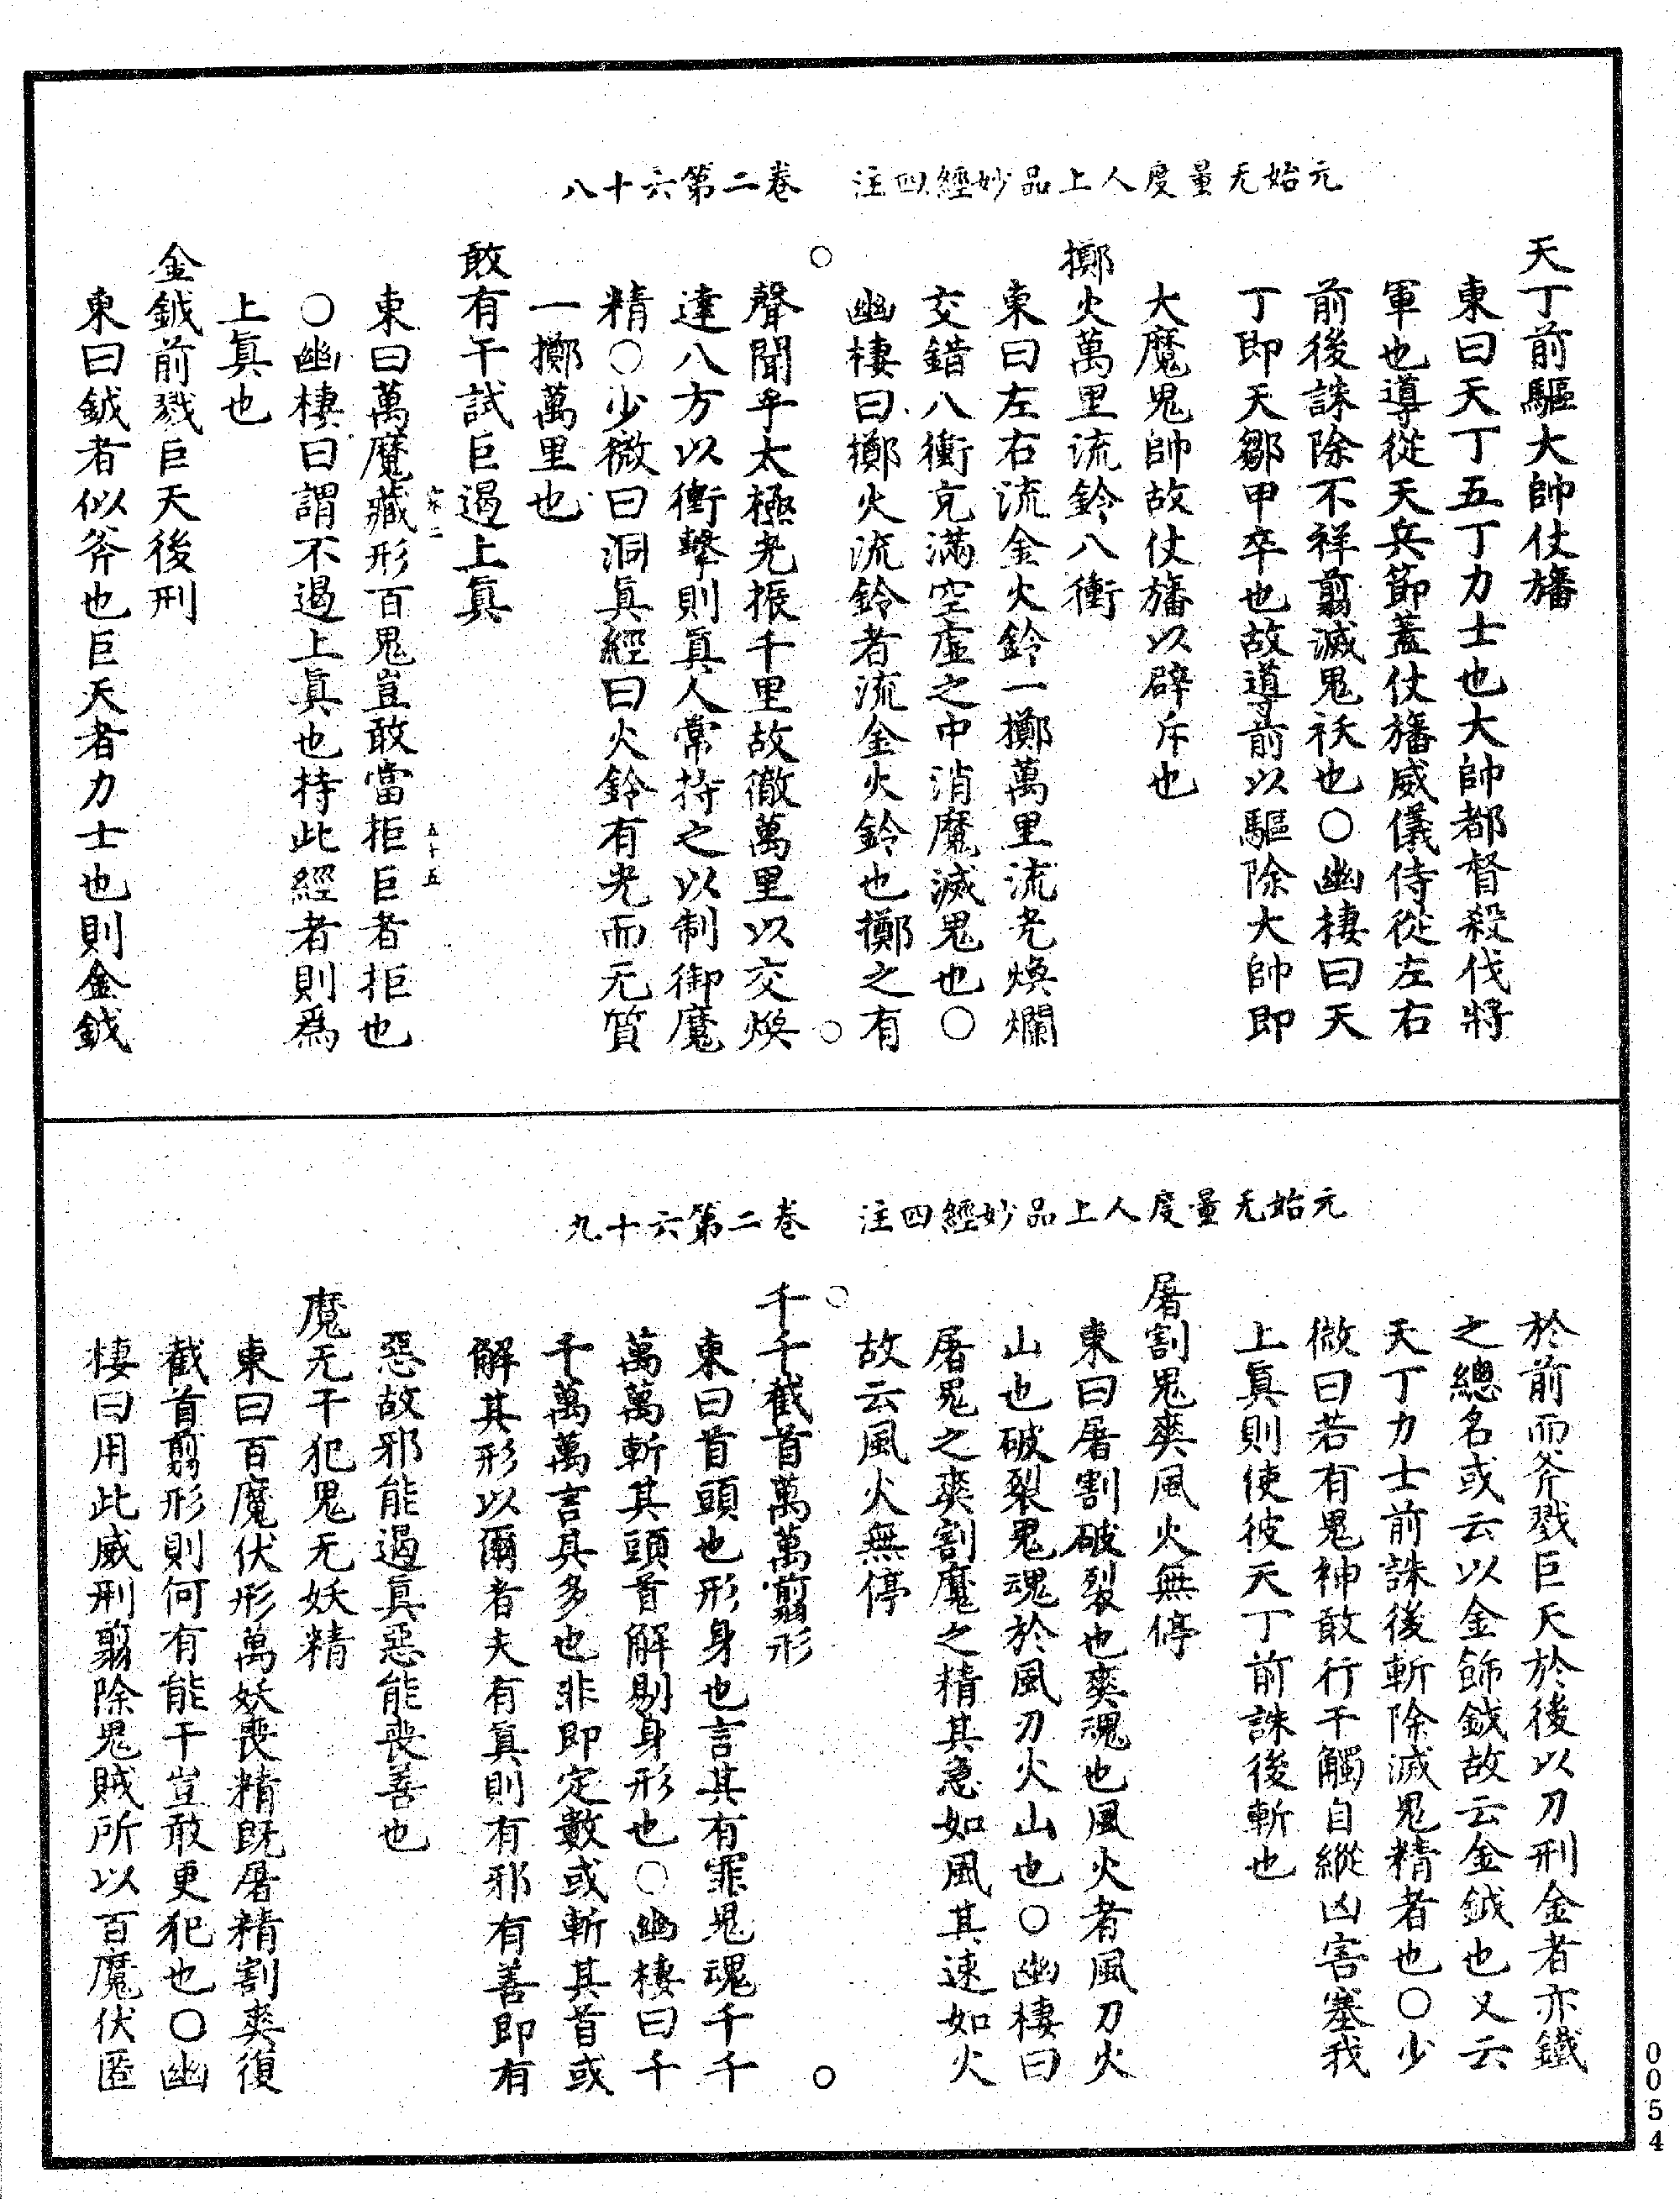 元始无量度人上品妙經四注　卷二第六十八
天丁前驅大帥仗旛
東曰天丁五丁力士也大帥都督殺伐將
軍也導從天兵節蓋仗旛威儀侍從左右
前後誅除不祥翦滅鬼祅也○幽棲曰天
丁即天鄒甲卒也故導前以驅除大帥即
大魔鬼帥故仗旛以辟斥也
擲火萬里流鈴八衝
東曰左右流金火鈴一擲萬里流光煥爛
交錯八衝充滿空虛之中消魔滅鬼也○
幽棲曰擲火流鈴者流金火鈴也擲之有
聲聞乎太極光振千里故徹萬里以交煥
達八方以衝擊則真人常持之以制御魔
精○少微曰洞真經曰火鈴有光而无質
一擲萬里也
敢有干試巨遏上真
東曰萬魔藏形百鬼豈敢當拒巨者拒也
宋二　五十五
○幽棲曰謂不遏上真也持此經者則為
上真也
金鉞前戮巨天後刑
東曰鉞者似斧也巨天者力士也則金鉞
元始无量度人上品妙經四注　卷二第六十九
於前而斧戮巨天於後以刀刑金者亦鐵
之總名或云以金飾鉞故云金鉞也又云
天丁力士前誅後斬除滅鬼精者也○少
微曰若有鬼神敢行干觸自縱凶害塞我
上真則使彼天丁前誅後斬也
屠割鬼爽風火無停
東曰屠割破裂也爽魂也風火者風刀火
山也破裂鬼魂於風刀火山也○幽棲曰
屠鬼之爽割魔之精其急如風其速如火
故云風火無停
千千截首萬萬翦形
東曰首頭也形身也言其有罪鬼魂千千
萬萬斬其頭首解剔身形也○幽棲曰千
千萬萬言具多也非即定數或斬其首或
解其形以爾者夫有真則有邪有善即有
惡故邪能遏真惡能喪善也
魔无干犯鬼无妖精
東曰百魔伏形萬妖喪精既屠精割爽復
截首翦形則何有能干豈敢更犯也○幽
棲曰用此威刑翦除鬼賊所以百魔伏匿
0054